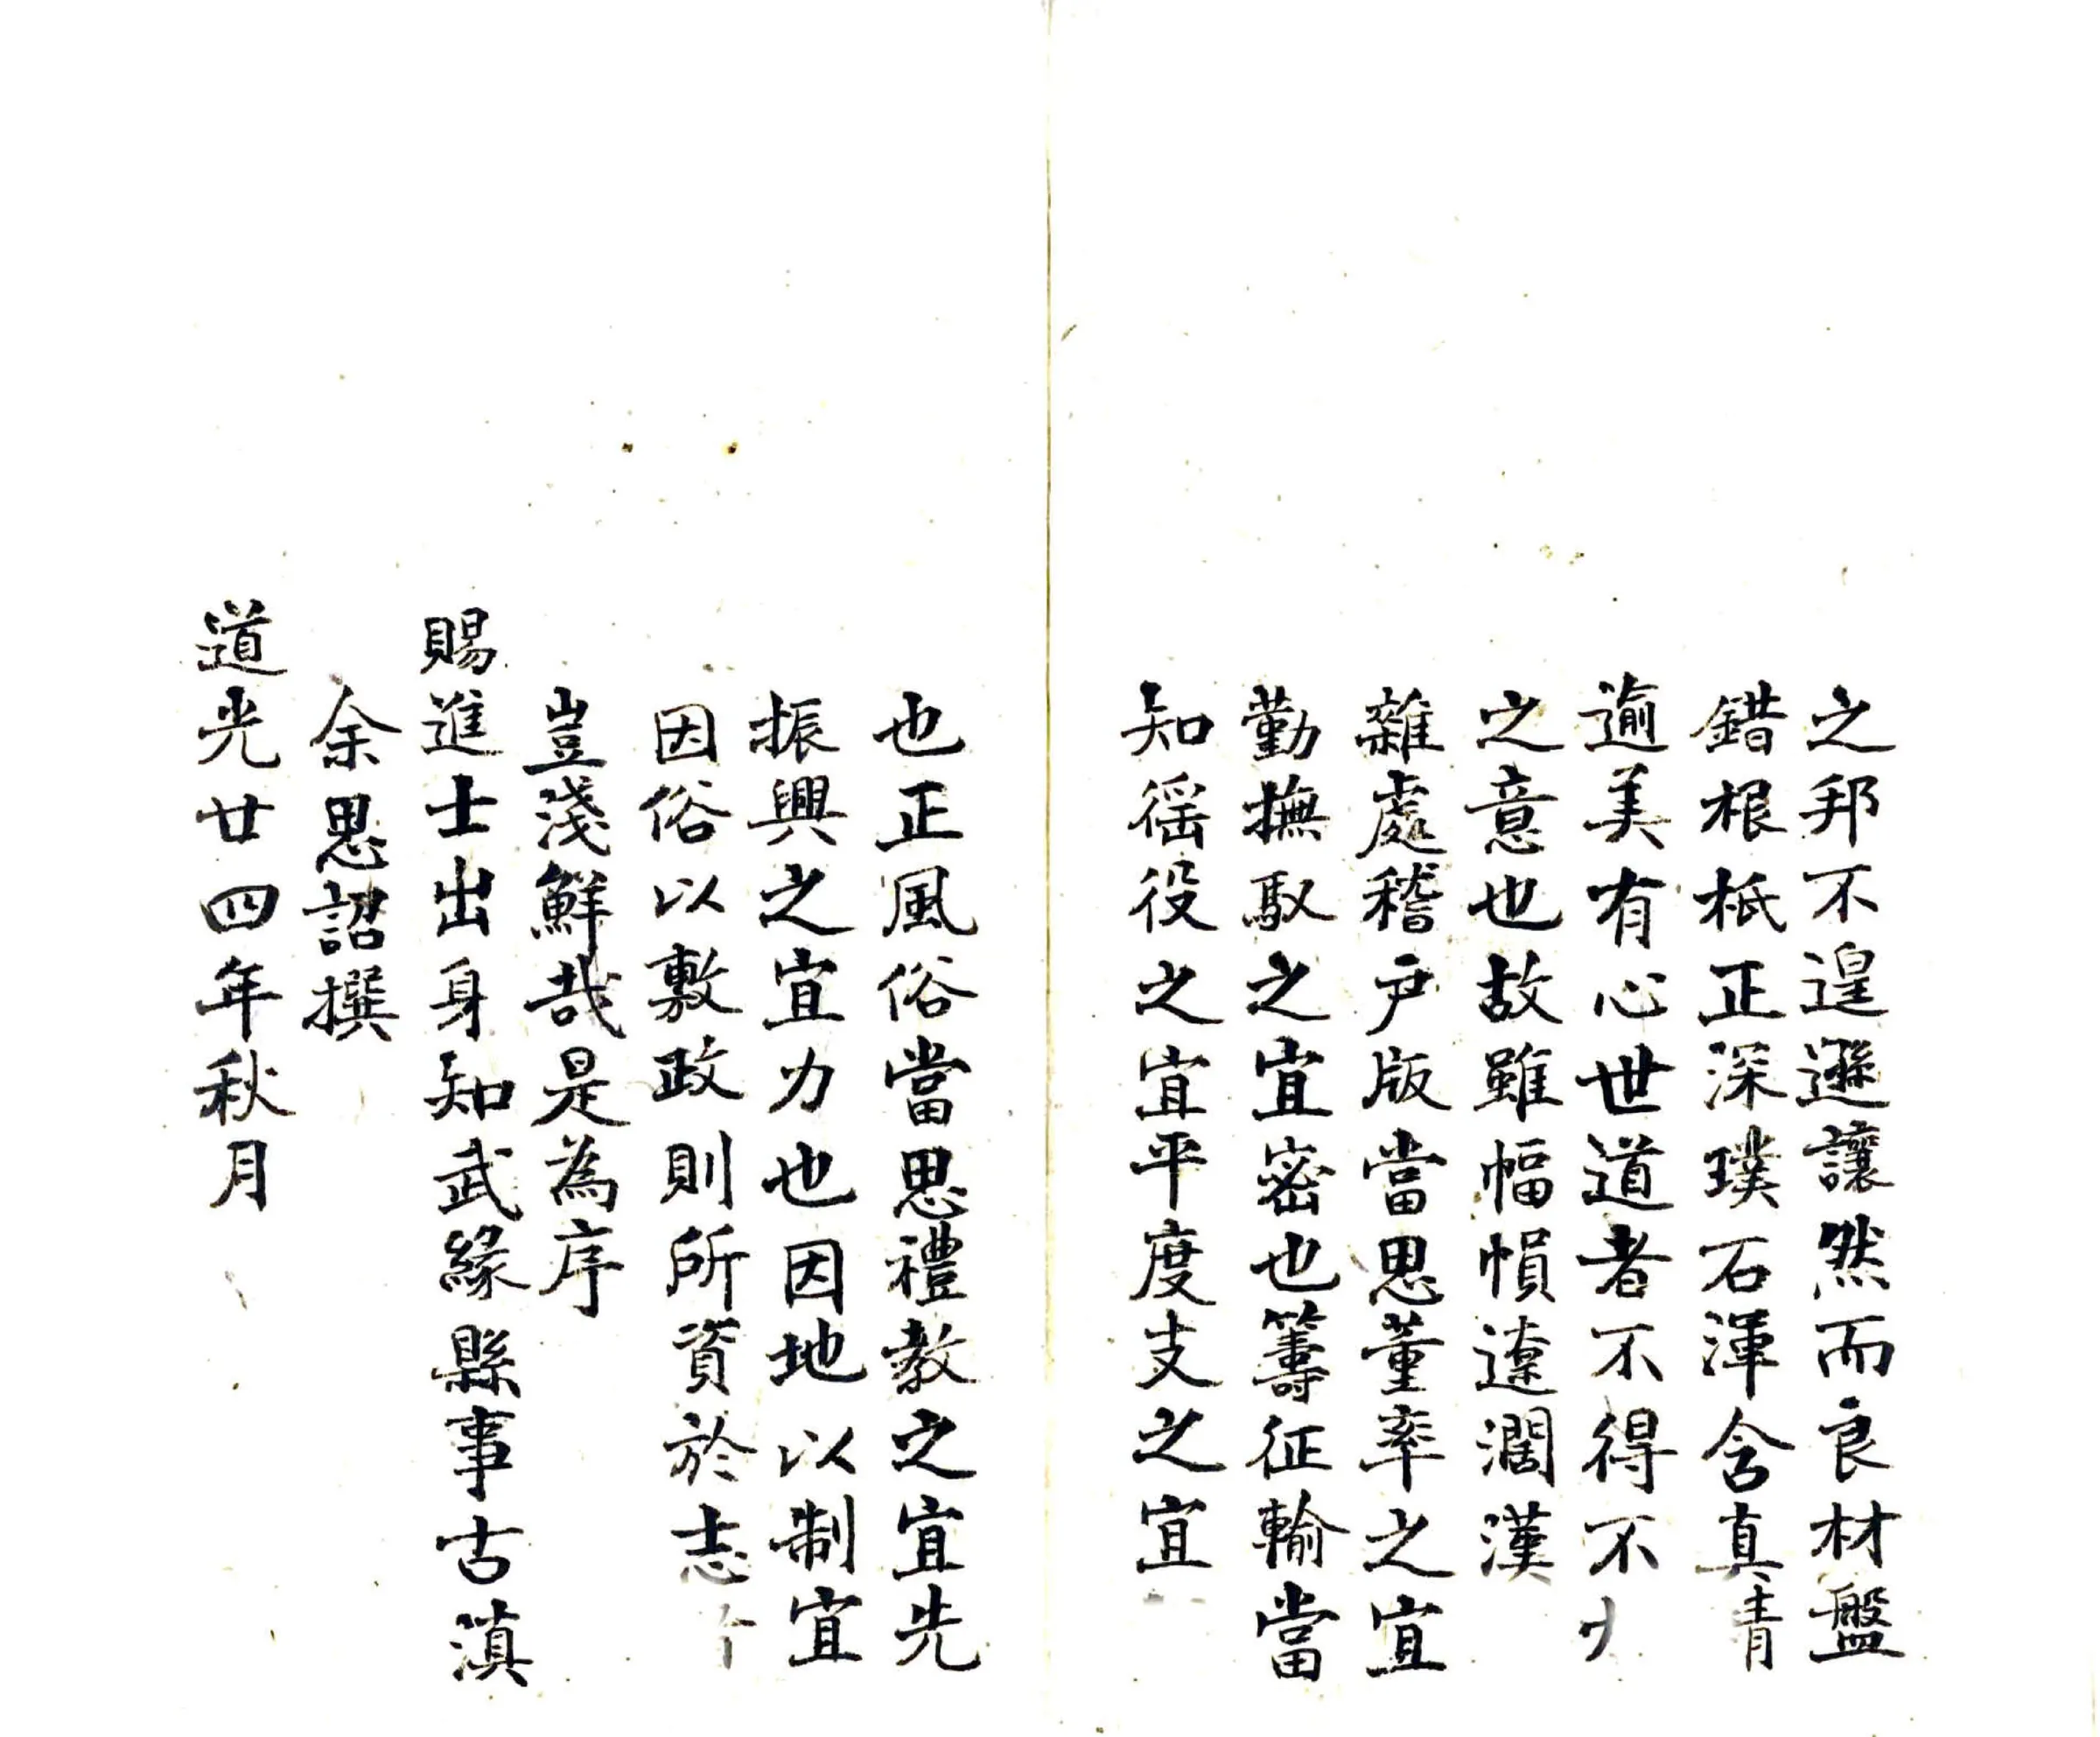 之邦不遑遜讓然而良材盤
錯根柢正深璞石渾含真
逾美有心世道者不得不
之意也故雖幅幀遼濶漢
雜處稽戶版當思董率之宜
勤撫馭之宜密也籌征輸當
知徭役之宜平度支之宜
也正風俗當思禮教之宜先
振興之宜力也因地以制宜
因俗以敷政則所資於志
豈淺鮮哉是為序
賜進士出身知武緣縣事古滇
余思詔撰
道光廿四年秋月